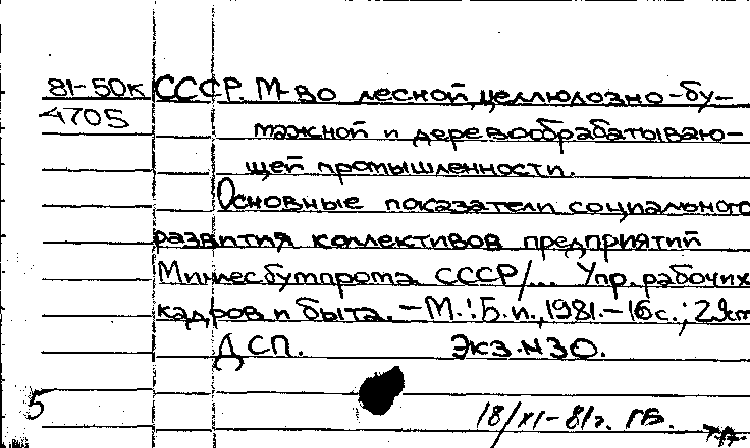 81-50к СССР. М-во лесной, целлюлозно-бу-
4705 мажной и деревообрабатываю-
щей промышленности.
Основные показатели социального
развития коллективов предприятий
Минлесбумпрома СССР/... Упр. рабочих
кадров и быта. - М.: Б. и., 1981. - 16 с.; 29 см
ДСП. Экз. № 30.
5
18/XI-81г. ГВ.